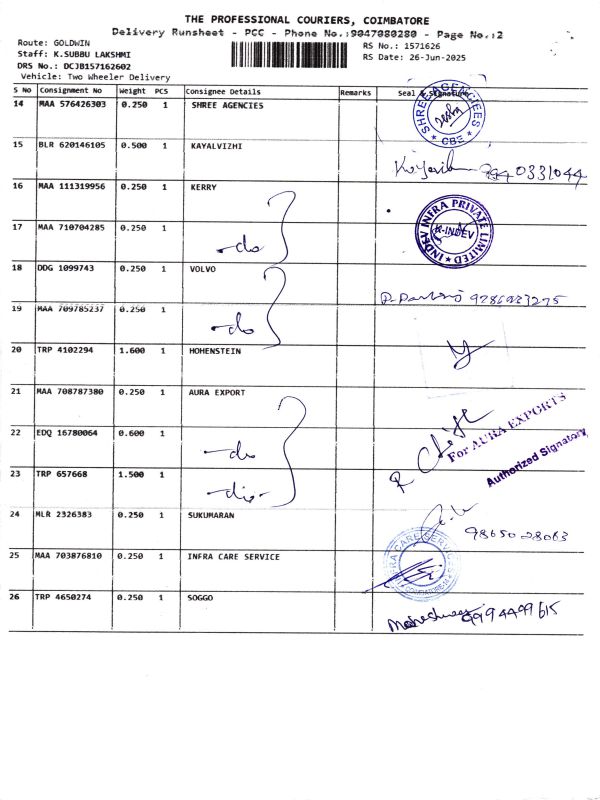 THE PROFESSIONAL COURIERS, COIMBATORE
Delivery Runsheet - PCC - Phone No.:9047080280 - Page No.:2
Route: GOLDWIN
Staff: K.SUBBU LAKSHMI
DRS No.: DCJB157162602
Vehicle: Two Wheeler Delivery
RS No.: 1571626
RS Date: 26-Jun-2025
S No Consignment No Weight PCS Consignee Details Remarks Seal & Signature
14 MAA 576426303 0.250 1 SHREE AGENCIES
SHREE AGENCIES
CBE
15 BLR 620146105 0.500 1 KAYALVIZHI
9840331044
16 MAA 111319956 0.250 1 KERRY
17 MAA 710704285 0.250 1 -do
INDEV INFRA PRIVATE LIMITED
K-INDEV
18 DDG 1099743 0.250 1 VOLVO
9286983275
19 MAA 709785237 0.250 1 -do
20 TRP 4102294 1.600 1 HOHENSTEIN
21 MAA 708787380 0.250 1 AURA EXPORT
For AURA EXPORTS
Authorized Signatory
22 EDQ 16780064 0.600 1 -do
23 TRP 657668 1.500 1 -do-
24 MLR 2326383 0.250 1 SUKUMARAN
9865028063
25 MAA 703876810 0.250 1 INFRA CARE SERVICE
INFRA CARE SERVICE
26 TRP 4650274 0.250 1 SOGGO
Maheshwari 9994499615